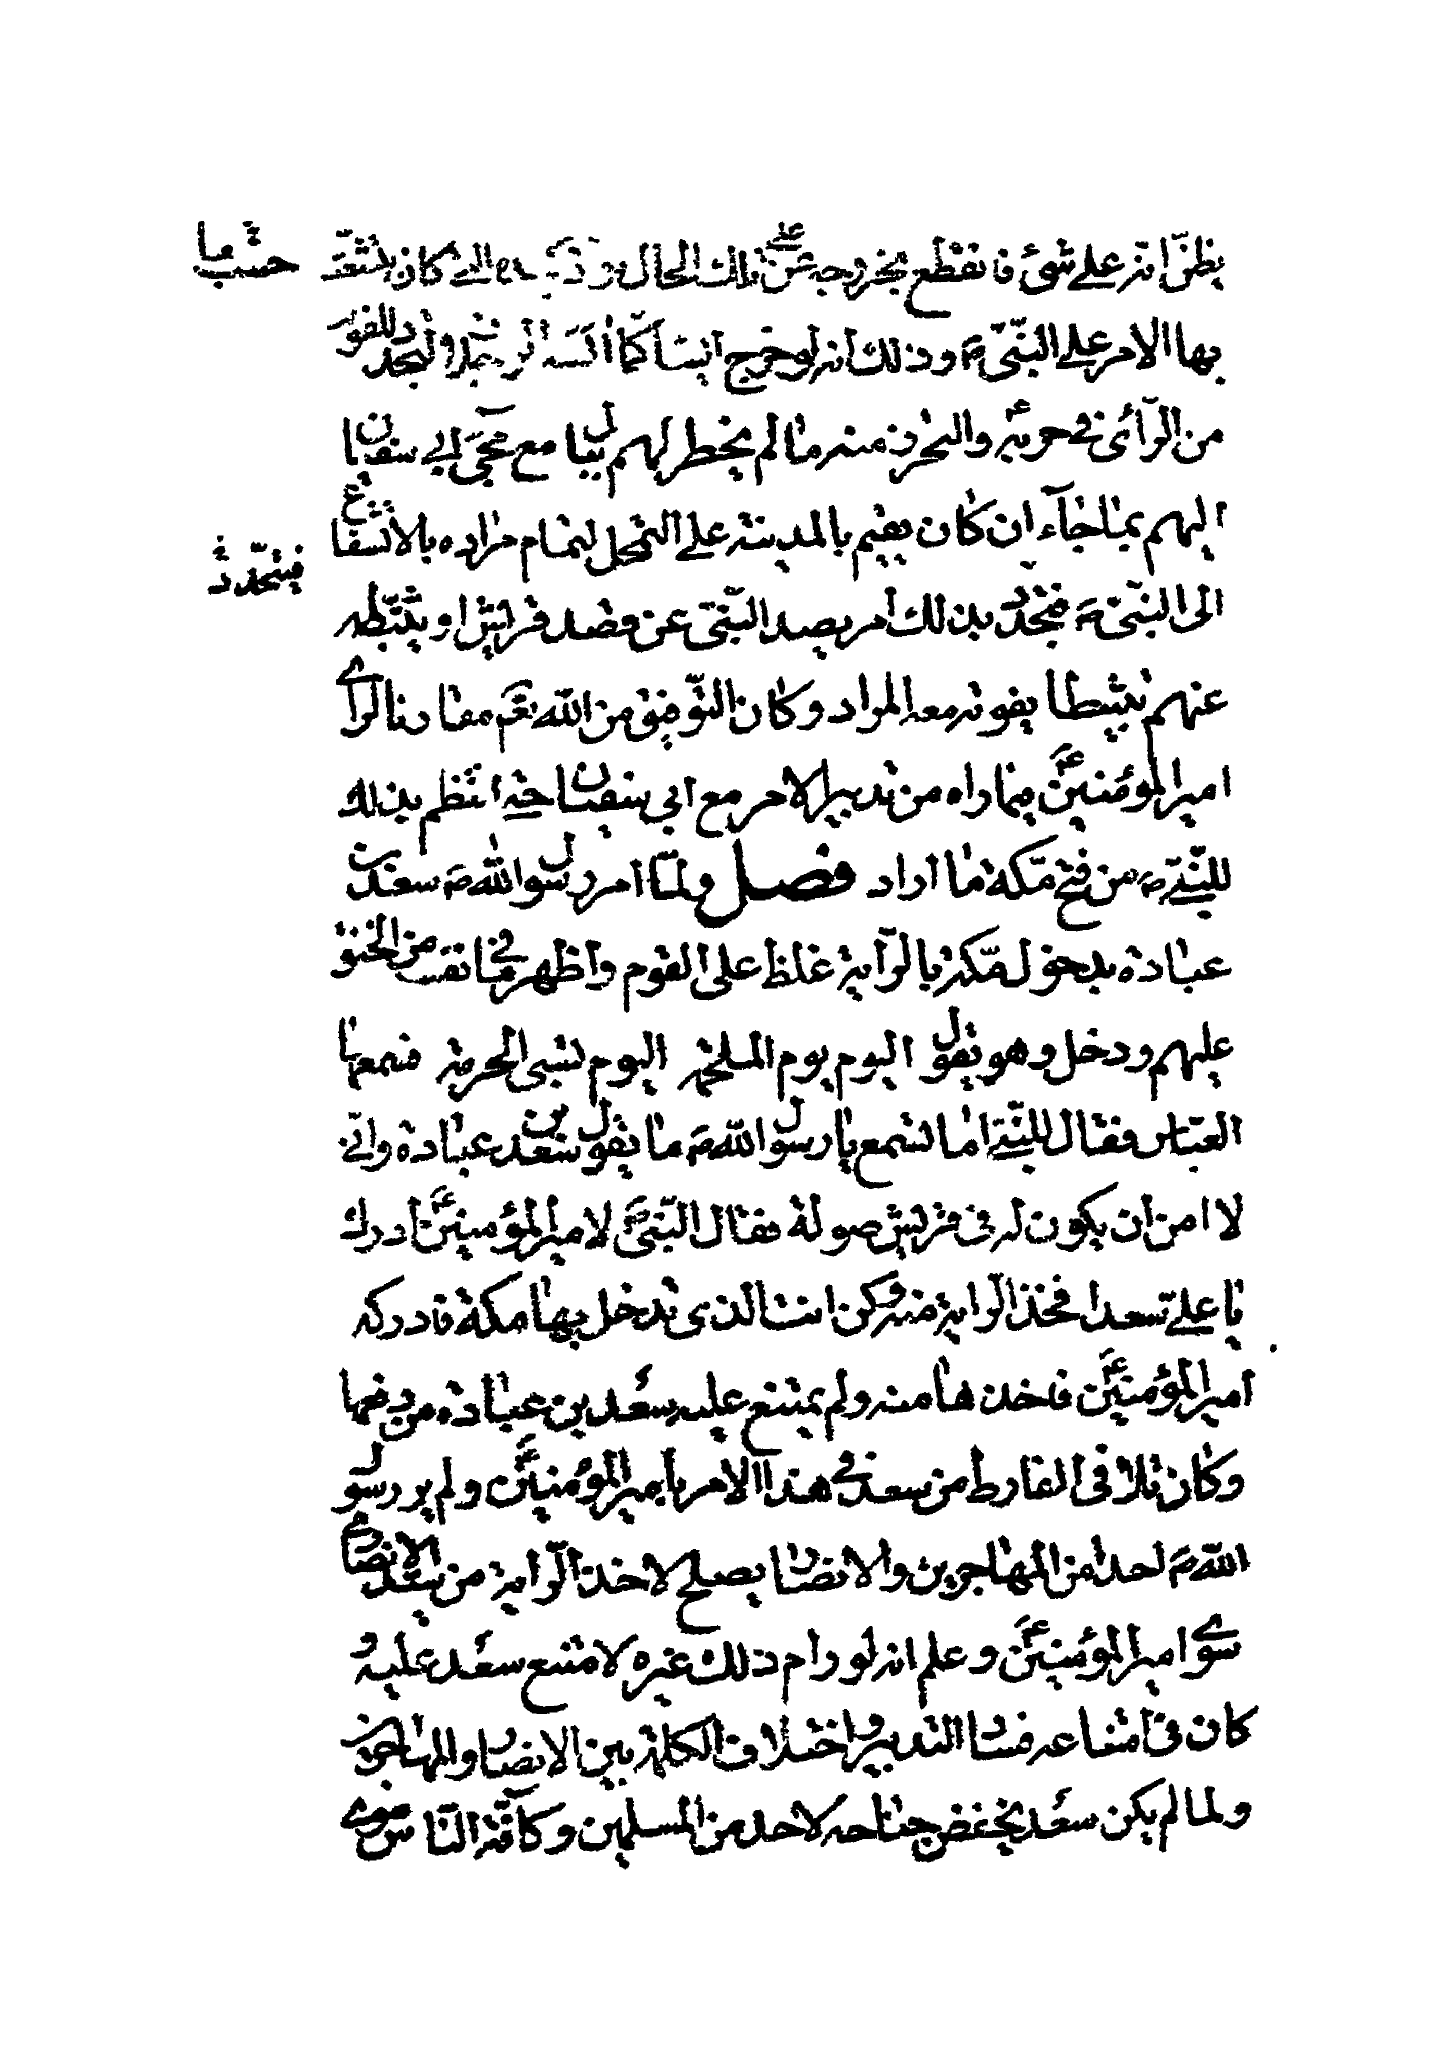 يظنّ انه على شئ فانقطع بخروجه عن تلك الحال كان يشعث حسب ما
بها الامر على النبيّ ص وذلك انه لو خرج ايسا كما لتجدد للقوم
من الرأى في حربه والتحرز منه ما لم يخطر لهم ببال مع مجئ ابي سفيان
اليهم بما جاء ان كان يقيم بالمدينة على التمحل لتمام مراده بالاستشفاع
الى النبيّ ص فيتجدد بذلك امر يصد النبيّ عن قصد قريش او يثبّطه فيتجدّد
عنهم تثبيطا يفوته معه المراد وكان التوفيق من الله تعم مقارنا لرأى
امير المؤمنين ع فيما راه من تدبير الامر مع ابي سفيان حتى انتظم بذلك
للنبيّ ص من فتح مكة ما اراد فصل ولمّا امر رسول الله ص سعد بن
عبادة بدخول مكّة بالرّاية غلظ على القوم واظهر ما في نفسه من الحنق
عليهم ودخل وهو يقول اليوم يوم الملحمة اليوم تسبى الحرمة فسمعها
العبّاس فقال للنبيّ اما تسمع يا رسول الله ص ما يقول سعد بن عبادة وانّي
لا امن ان يكون له في قريش صولة فقال النبيّ ص لامير المؤمنين ع ادرك
يا علىّ سعدا فخذ الرّاية منه وكن انت الذى تدخل بها مكة فادركه
امير المؤمنين ع فاخذها منه ولم يمتنع عليه سعد بن عبادة من دفعها
وكان تلافى الفارط من سعد في هذا الامر بامير المؤمنين ع ولم ير رسول
الله ص احدا من المهاجرين والانصار يصلح لاخذ الرّاية من سيّد الانصار
سوى امير المؤمنين ع وعلم انه لو رام ذلك غيره لامتنع سعد عليه و
كان في امتناعه فساد التدبير واختلاف الكلمة بين الانصار والمهاجرين
ولما لم يكن سعد يخفض جناحه لاحد من المسلمين وكافّة النّاس سوى